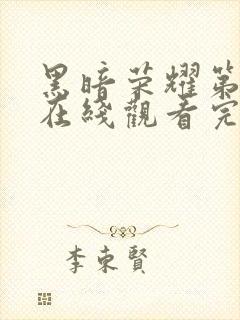 黑暗荣耀第
在綫觀看完
李東賢